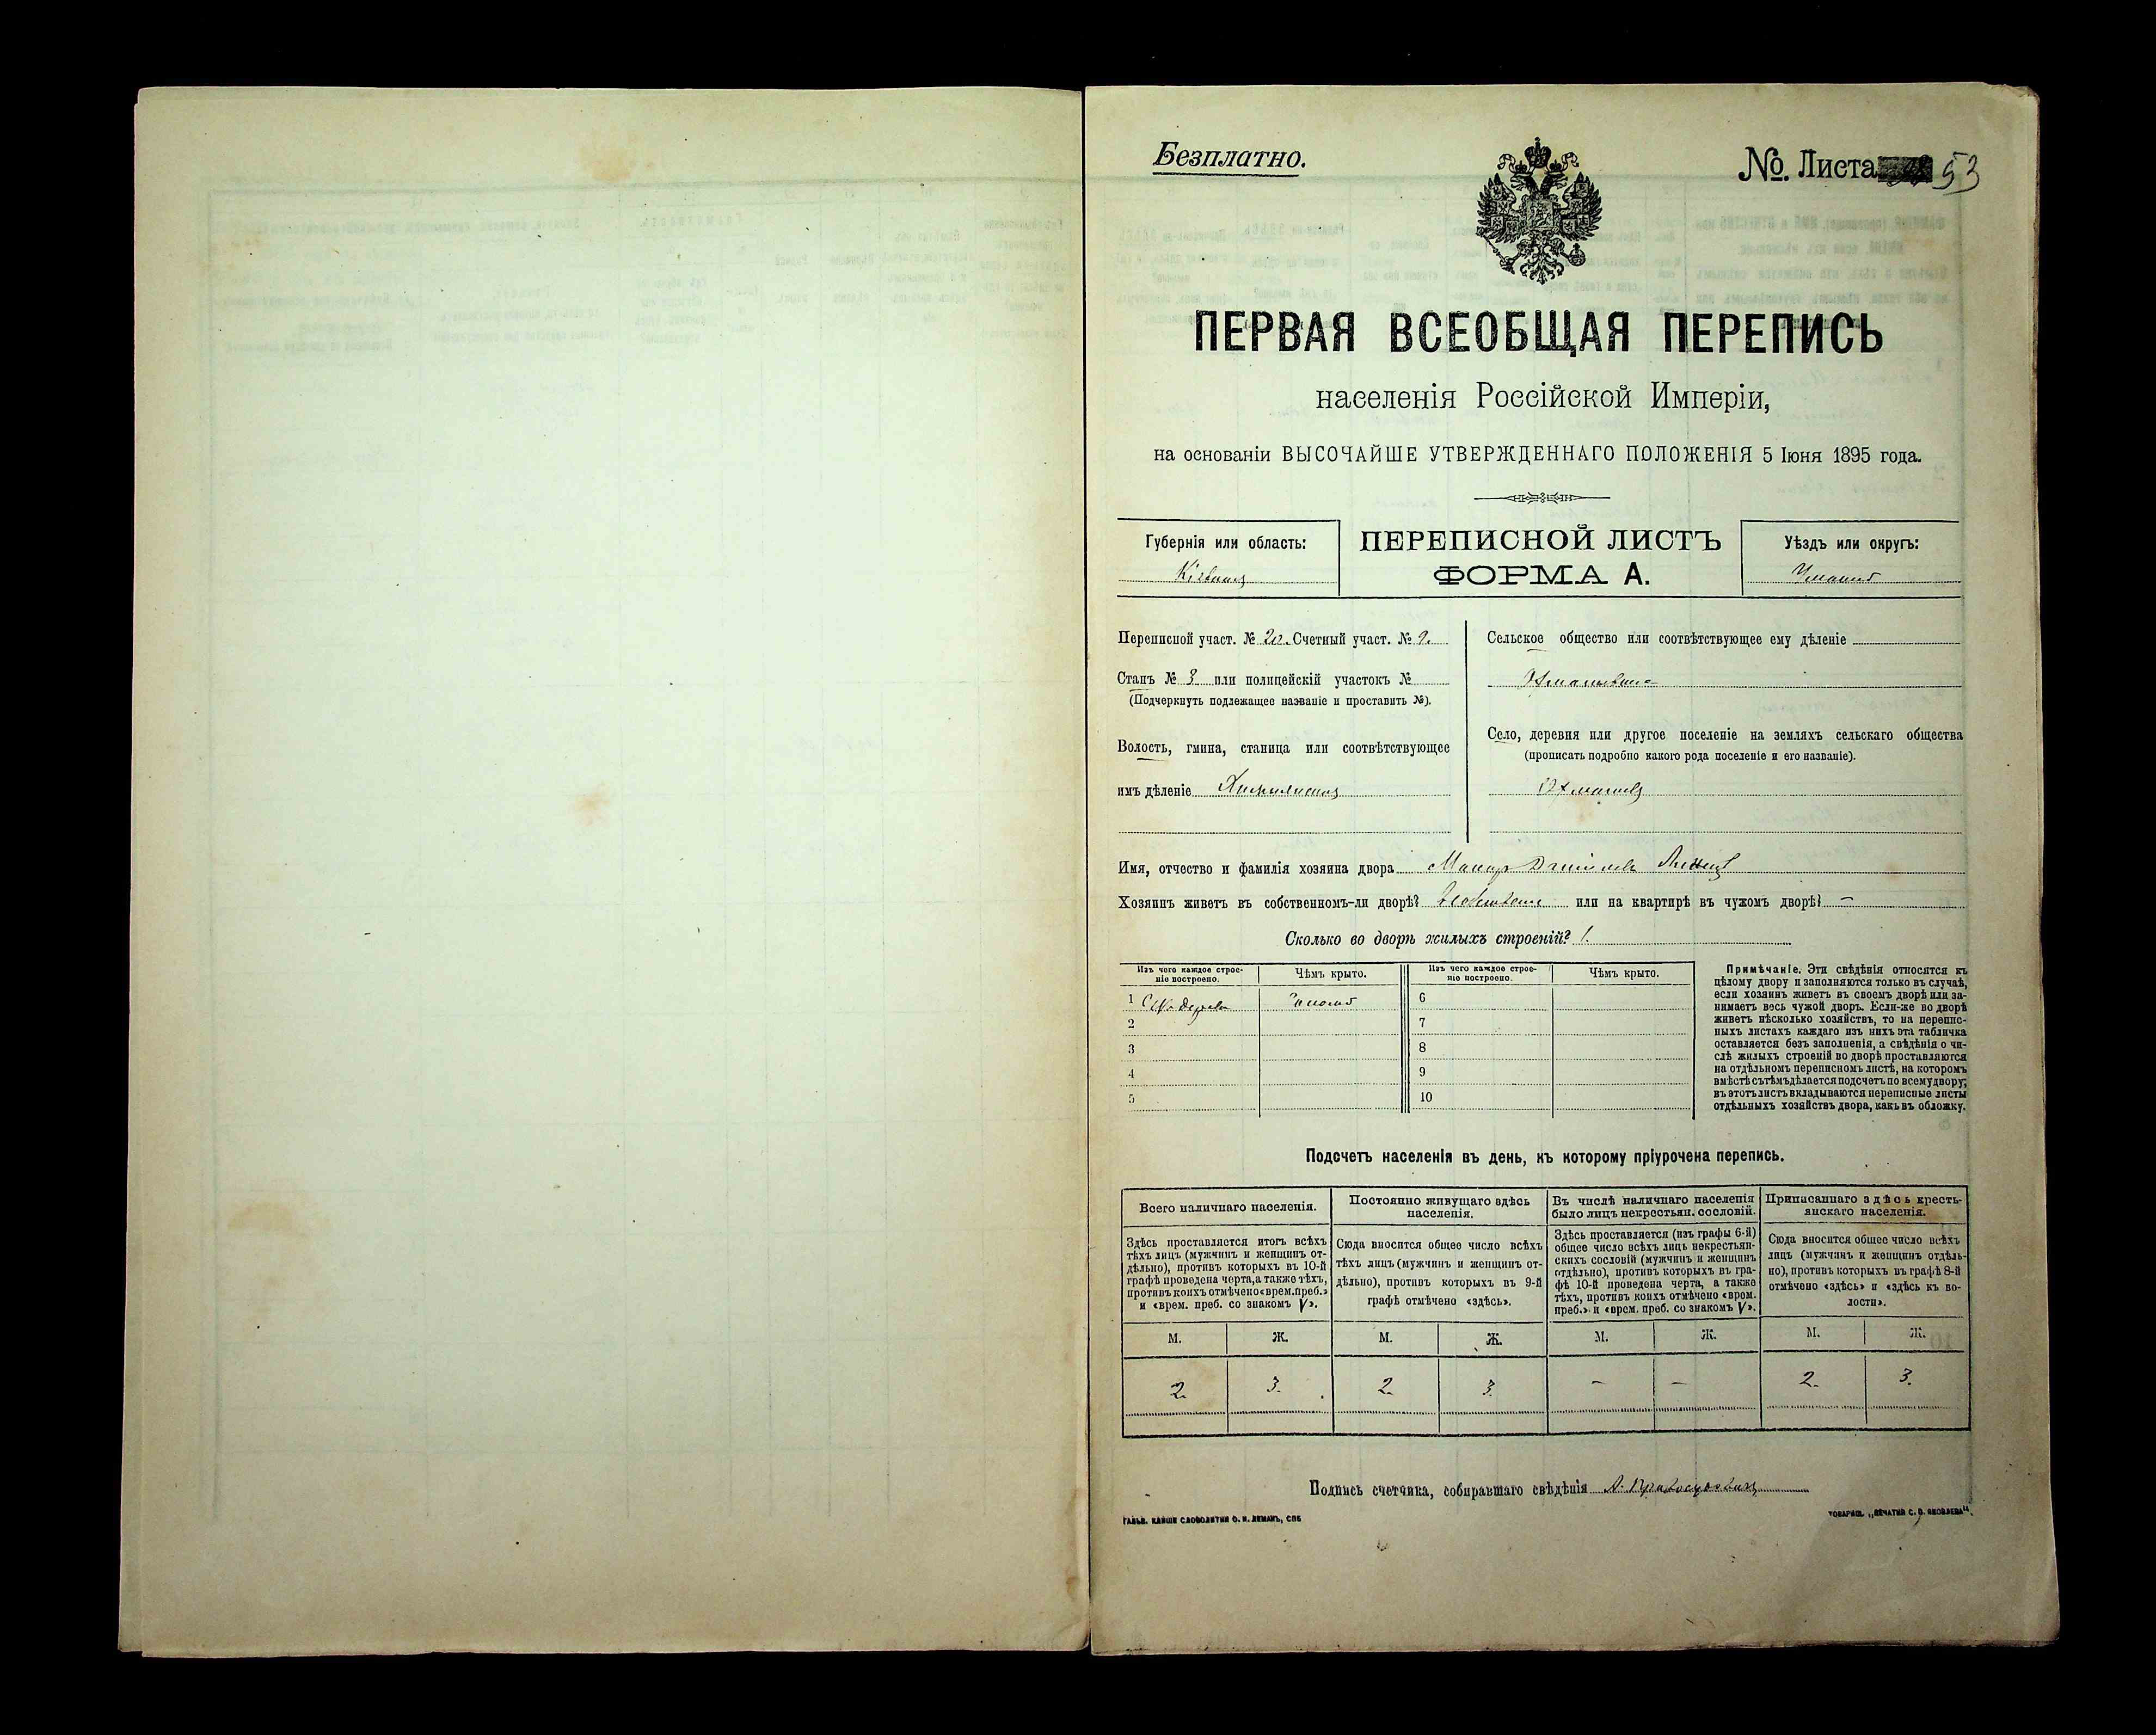 Безплатно.
№. Листа 53
ПЕРВАЯ ВСЕОБЩАЯ ПЕРЕПИСЬ
населенія Россійской Имперіи,
на основаніи ВЫСОЧАЙШЕ УТВЕРЖДЕННАГО ПОЛОЖЕНІЯ 5 Іюня 1895 года.
Губернія или область:
ПЕРЕПИСНОЙ ЛИСТЪ
ФОРМА А.
Уѣздъ или округъ:
Переписной участ. № 20. Счетный участ. № 9.
Станъ № 3 или полицейскій участокъ №
(Подчеркнуть подлежащее названіе и проставить №).
Волость, гмина, станица или соотвѣтствующее
имъ дѣленіе
Сельское общество или соотвѣтствующее ему дѣленіе
Село, деревня или другое поселеніе на земляхъ сельскаго общества
(прописать подробно какого рода поселеніе и его названіе).
Имя, отчество и фамилія хозяина двора
Хозяинъ живетъ въ собственномъ-ли дворѣ? или на квартирѣ въ чужомъ дворѣ? —
Сколько во дворѣ жилыхъ строеній? 1.
Изъ чего каждое строе-
ніе построено.
Чѣмъ крыто.
Изъ чего каждое строе-
ніе построено.
Чѣмъ крыто.
1
6
2
7
3
8
4
9
5
10
Примѣчаніе. Эти свѣдѣнія относятся къ
цѣлому двору и заполняются только въ случаѣ,
если хозяинъ живетъ въ своемъ дворѣ или за-
нимаетъ весь чужой дворъ. Если-же во дворѣ
живетъ нѣсколько хозяйствъ, то на перепис-
ныхъ листахъ каждаго изъ нихъ эта табличка
оставляется безъ заполненія, а свѣдѣнія о чи-
слѣ жилыхъ строеній во дворѣ проставляются
на отдѣльномъ переписномъ листѣ, на которомъ
вмѣстѣ съ тѣмъ дѣлается подсчетъ по всему двору;
въ этотъ листъ вкладываются переписные листы
отдѣльныхъ хозяйствъ двора, какъ въ обложку.
Подсчетъ населенія въ день, къ которому пріурочена перепись.
Всего наличнаго населенія.
Здѣсь проставляется итогъ всѣхъ
тѣхъ лицъ (мужчинъ и женщинъ от-
дѣльно), противъ которыхъ въ 10-й
графѣ проведена черта, а также тѣхъ,
противъ коихъ отмѣчено «врем. преб.»
и «врем. преб. со знакомъ V».
Постоянно живущаго здѣсь
населенія.
Сюда вносится общее число всѣхъ
тѣхъ лицъ (мужчинъ и женщинъ от-
дѣльно), противъ которыхъ въ 9-й
графѣ отмѣчено «здѣсь».
Въ числѣ наличнаго населенія
было лицъ некрестьян. сословій.
Здѣсь проставляется (изъ графы 6-й)
общее число всѣхъ лицъ некрестьян-
скихъ сословій (мужчинъ и женщинъ
отдѣльно), противъ которыхъ въ гра-
фѣ 10-й проведена черта, а также
тѣхъ, противъ коихъ отмѣчено «врем.
преб.» и «врем. преб. со знакомъ V».
Приписаннаго здѣсь кресть-
янскаго населенія.
Сюда вносится общее число всѣхъ
лицъ (мужчинъ и женщинъ отдѣль-
но), противъ которыхъ въ графѣ 8-й
отмѣчено «здѣсь» и «здѣсь къ во-
лости».
М. Ж. М. Ж. М. Ж. М. Ж.
2. 3. 2. 3. — — 2. 3.
Подпись счетчика, собиравшаго свѣдѣнія
ГАЛЬВ. КЛИШЕ СЛОВОЛИТНИ О. И. ЛЕМАНЪ, СПБ
ТОВАРИЩ. „ПЕЧАТНЯ С. П. ЯКОВЛЕВА“.